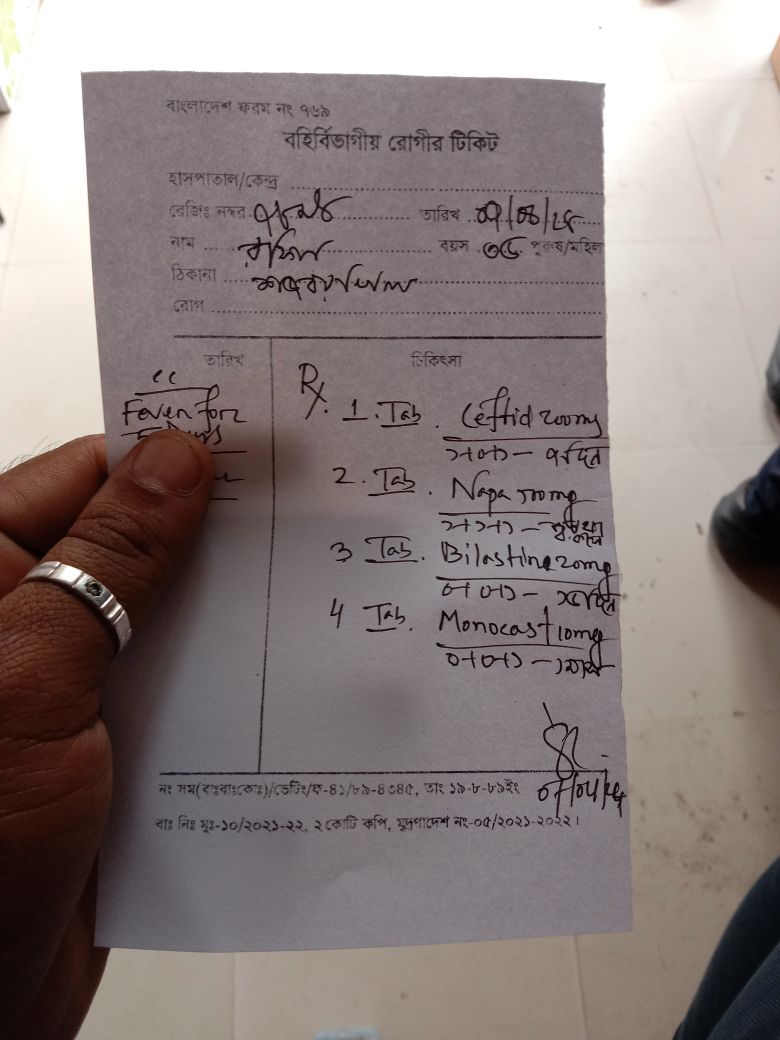 বাংলাদেশ ফরম নং ৭৬৯
বহির্বিভাগীয় রোগীর টিকিট
হাসপাতাল/কেন্দ্র
রেজিঃ নম্বর তারিখ
নাম বয়স ৩৫ পুরুষ/মহিলা
ঠিকানা
রোগ
তারিখ চিকিৎসা
Rx
Fever for
1. Tab. Ceftid 200mg
১+০+১ — ৭ দিন
2. Tab. Napa 500mg
১+১+১ —
3 Tab. Bilastine 20mg
০+০+১ — ১৫ দিন
4 Tab. Monocast 10mg
০+০+১ — ১ মাস
নং সম(বাঃবাঃকোঃ)/ডেটিং/ফ-৪১/৮৯-৪৩৪৫, তাং ১৯-৮-৮৯ইং
বাঃ নিঃ মুঃ-১০/২০২১-২২, ২ কোটি কপি, মুদ্রণাদেশ নং-০৫/২০২১-২০২২।